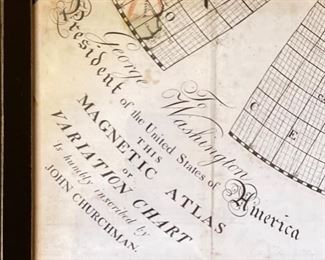 To
George Washington
President of the United States of America
THIS
MAGNETIC ATLAS
or
VARIATION CHART
Is humbly inscribed by
JOHN CHURCHMAN.
O
C
E